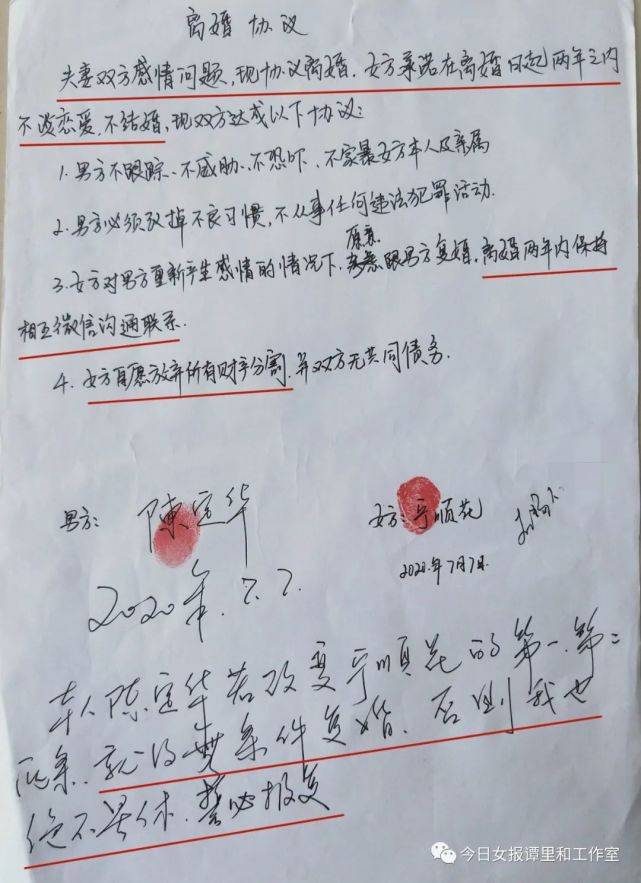 离婚协议
夫妻双方感情问题,现协议离婚.女方承诺在离婚日起两年之内
不谈恋爱,不结婚,现双方达成以下协议:
1.男方不跟踪、不威胁、不恐吓、不家暴女方本人及亲属
2.男方必须改掉不良习惯,不从事任何违法犯罪活动.
愿意
3.女方对男方重新产生感情的情况下,跟男方复婚,离婚两年内保持
相互微信沟通联系.
4.女方自愿放弃所有财产分割.并双方无共同债务.
男方:陳定华
女方:宁顺花
2020年7.7.
2020年7月7日.
本人陈定华若改变宁順花的第一.第二
两条.就得无条件复婚.否则我也
绝不罢休.誓必报复
今日女报谭里和工作室